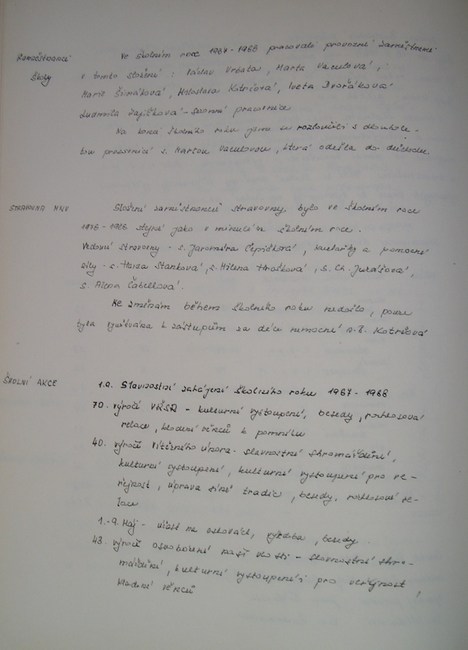 Zaměstnanci školy
Ve školním roce 1987-1988 pracovali provozní zaměstnanci
v tomto složení: Václav Vrbata, Marta Vaculová,
Marie Šimáková, Holoslava Kotrčová, Iveta Dvořáková
Ludmila Zajíčková - sezonní pracovnice
Na konci školního roku jsme se rozloučili s dlouhole-
tou pracovnicí s. Martou Vaculovou, která odešla do důchodu
STRAVOVNA MNV
Složení zaměstnanců stravovny, bylo ve školním roce
stejné jako v minulém školním roce.
Vedoucí stravovny - s. Jaromíra Čepičková, kuchařky a pomocné
síly - s. Staňková, s. Milena Hrašková, s. Jurášová,
s. Alena
Ke změnám během školního roku nedošlo, pouze
byla využívána k zástupům za dobu nemocné s. Kotrčová
ŠKOLNÍ AKCE
1.9. Slavnostní zahájení školního roku 1987-1988
70. výročí VŘSR - kulturní vystoupení, besedy, rozhlasová
relace, kladení věnců k pomníku
40. výročí Vítězného února - slavnostní shromáždění,
kulturní vystoupení, kulturní vystoupení pro ve-
řejnost, úprava síně tradic, besedy, rozhlasové re-
lace
1.-9. Máj - účast na oslavách, výzdoba, besedy.
43. výročí osvobození naší vlasti - slavnostní shro-
máždění, kulturní vystoupení i pro veřejnost,
kladení věnců